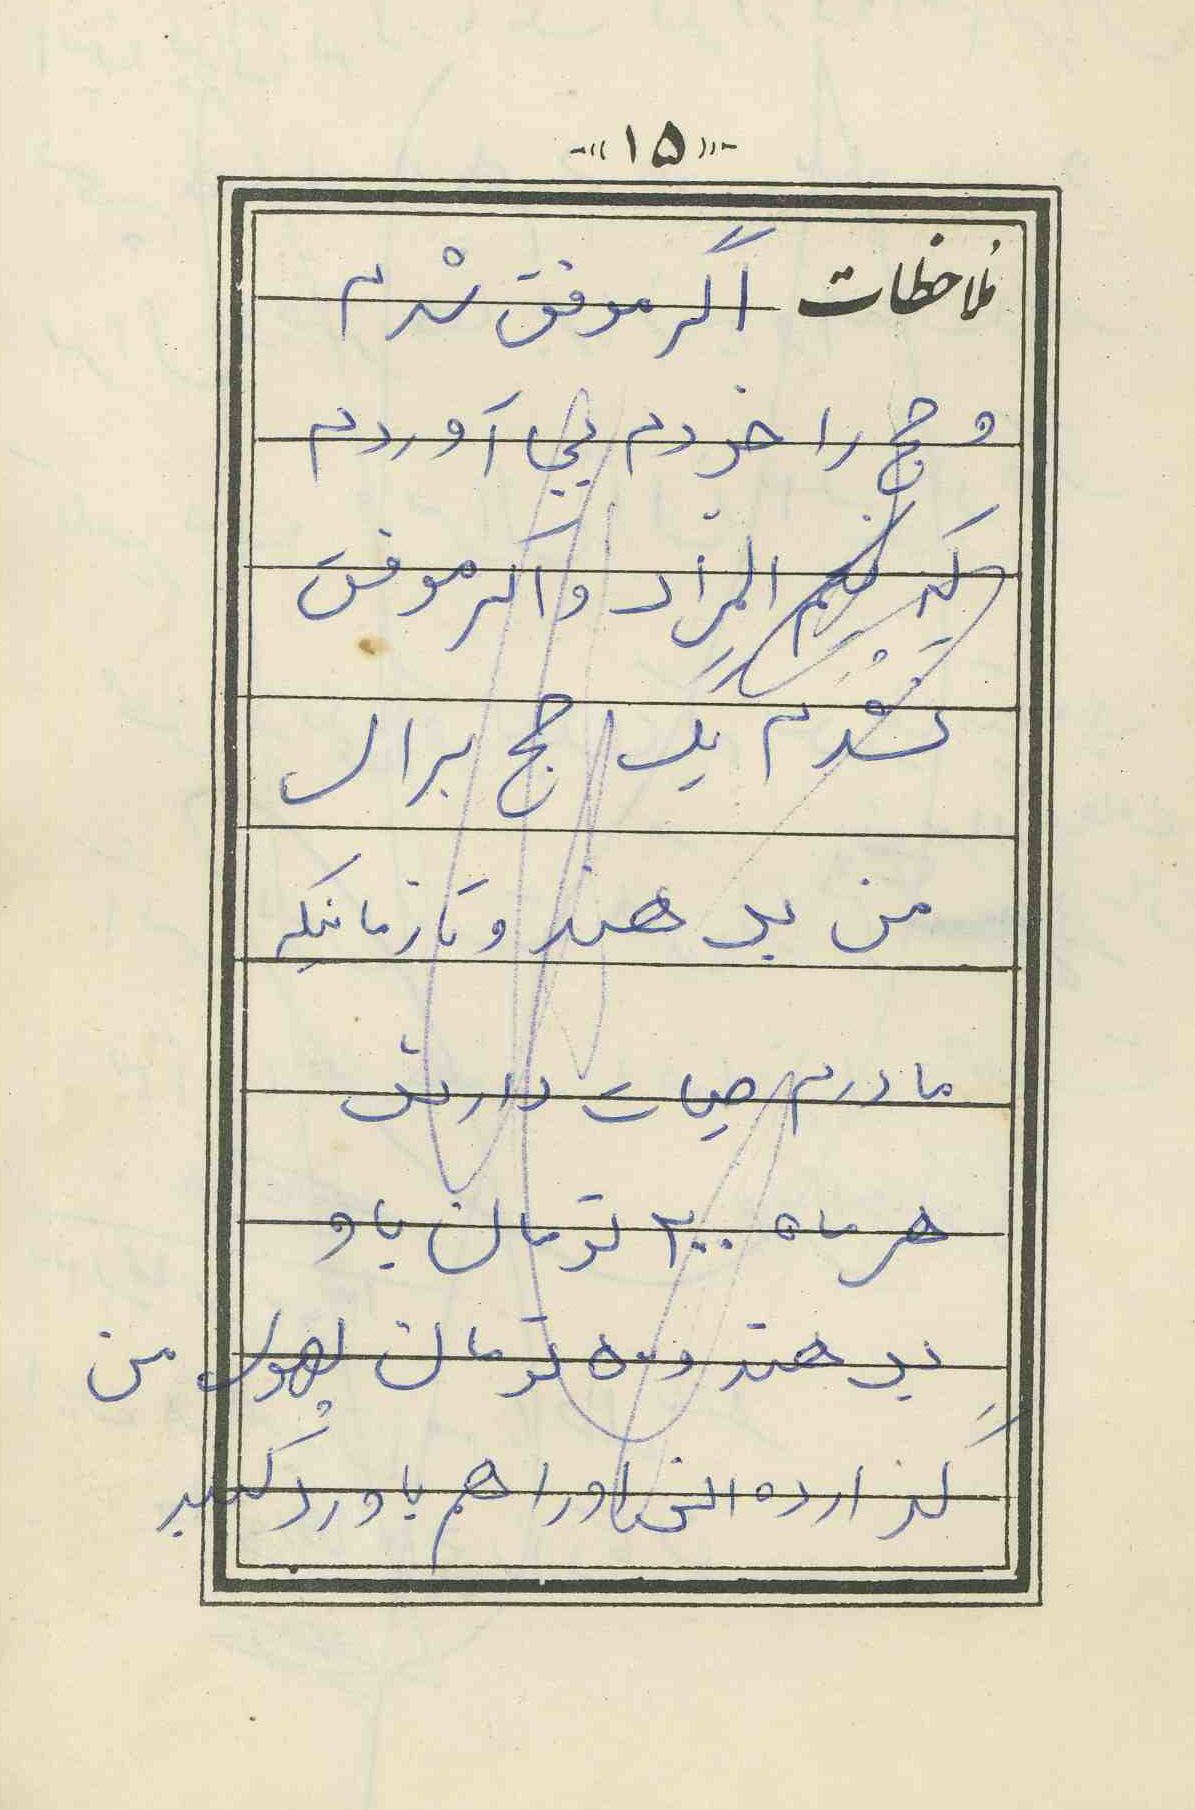 -«۱۵»-
ملاحظات اگر موفق شدم
و حج را خودم بجا آوردم
که فنعم المراد و اگر موفق
نشدم یک حج برای
من بدهند و تا زمانیکه
مادرم حیات دارند
هر ماه ۲۰۰ تومان باو
بدهند و ۵۰۰ تومان پول من
گذارده ام او را هم باو رد کنید